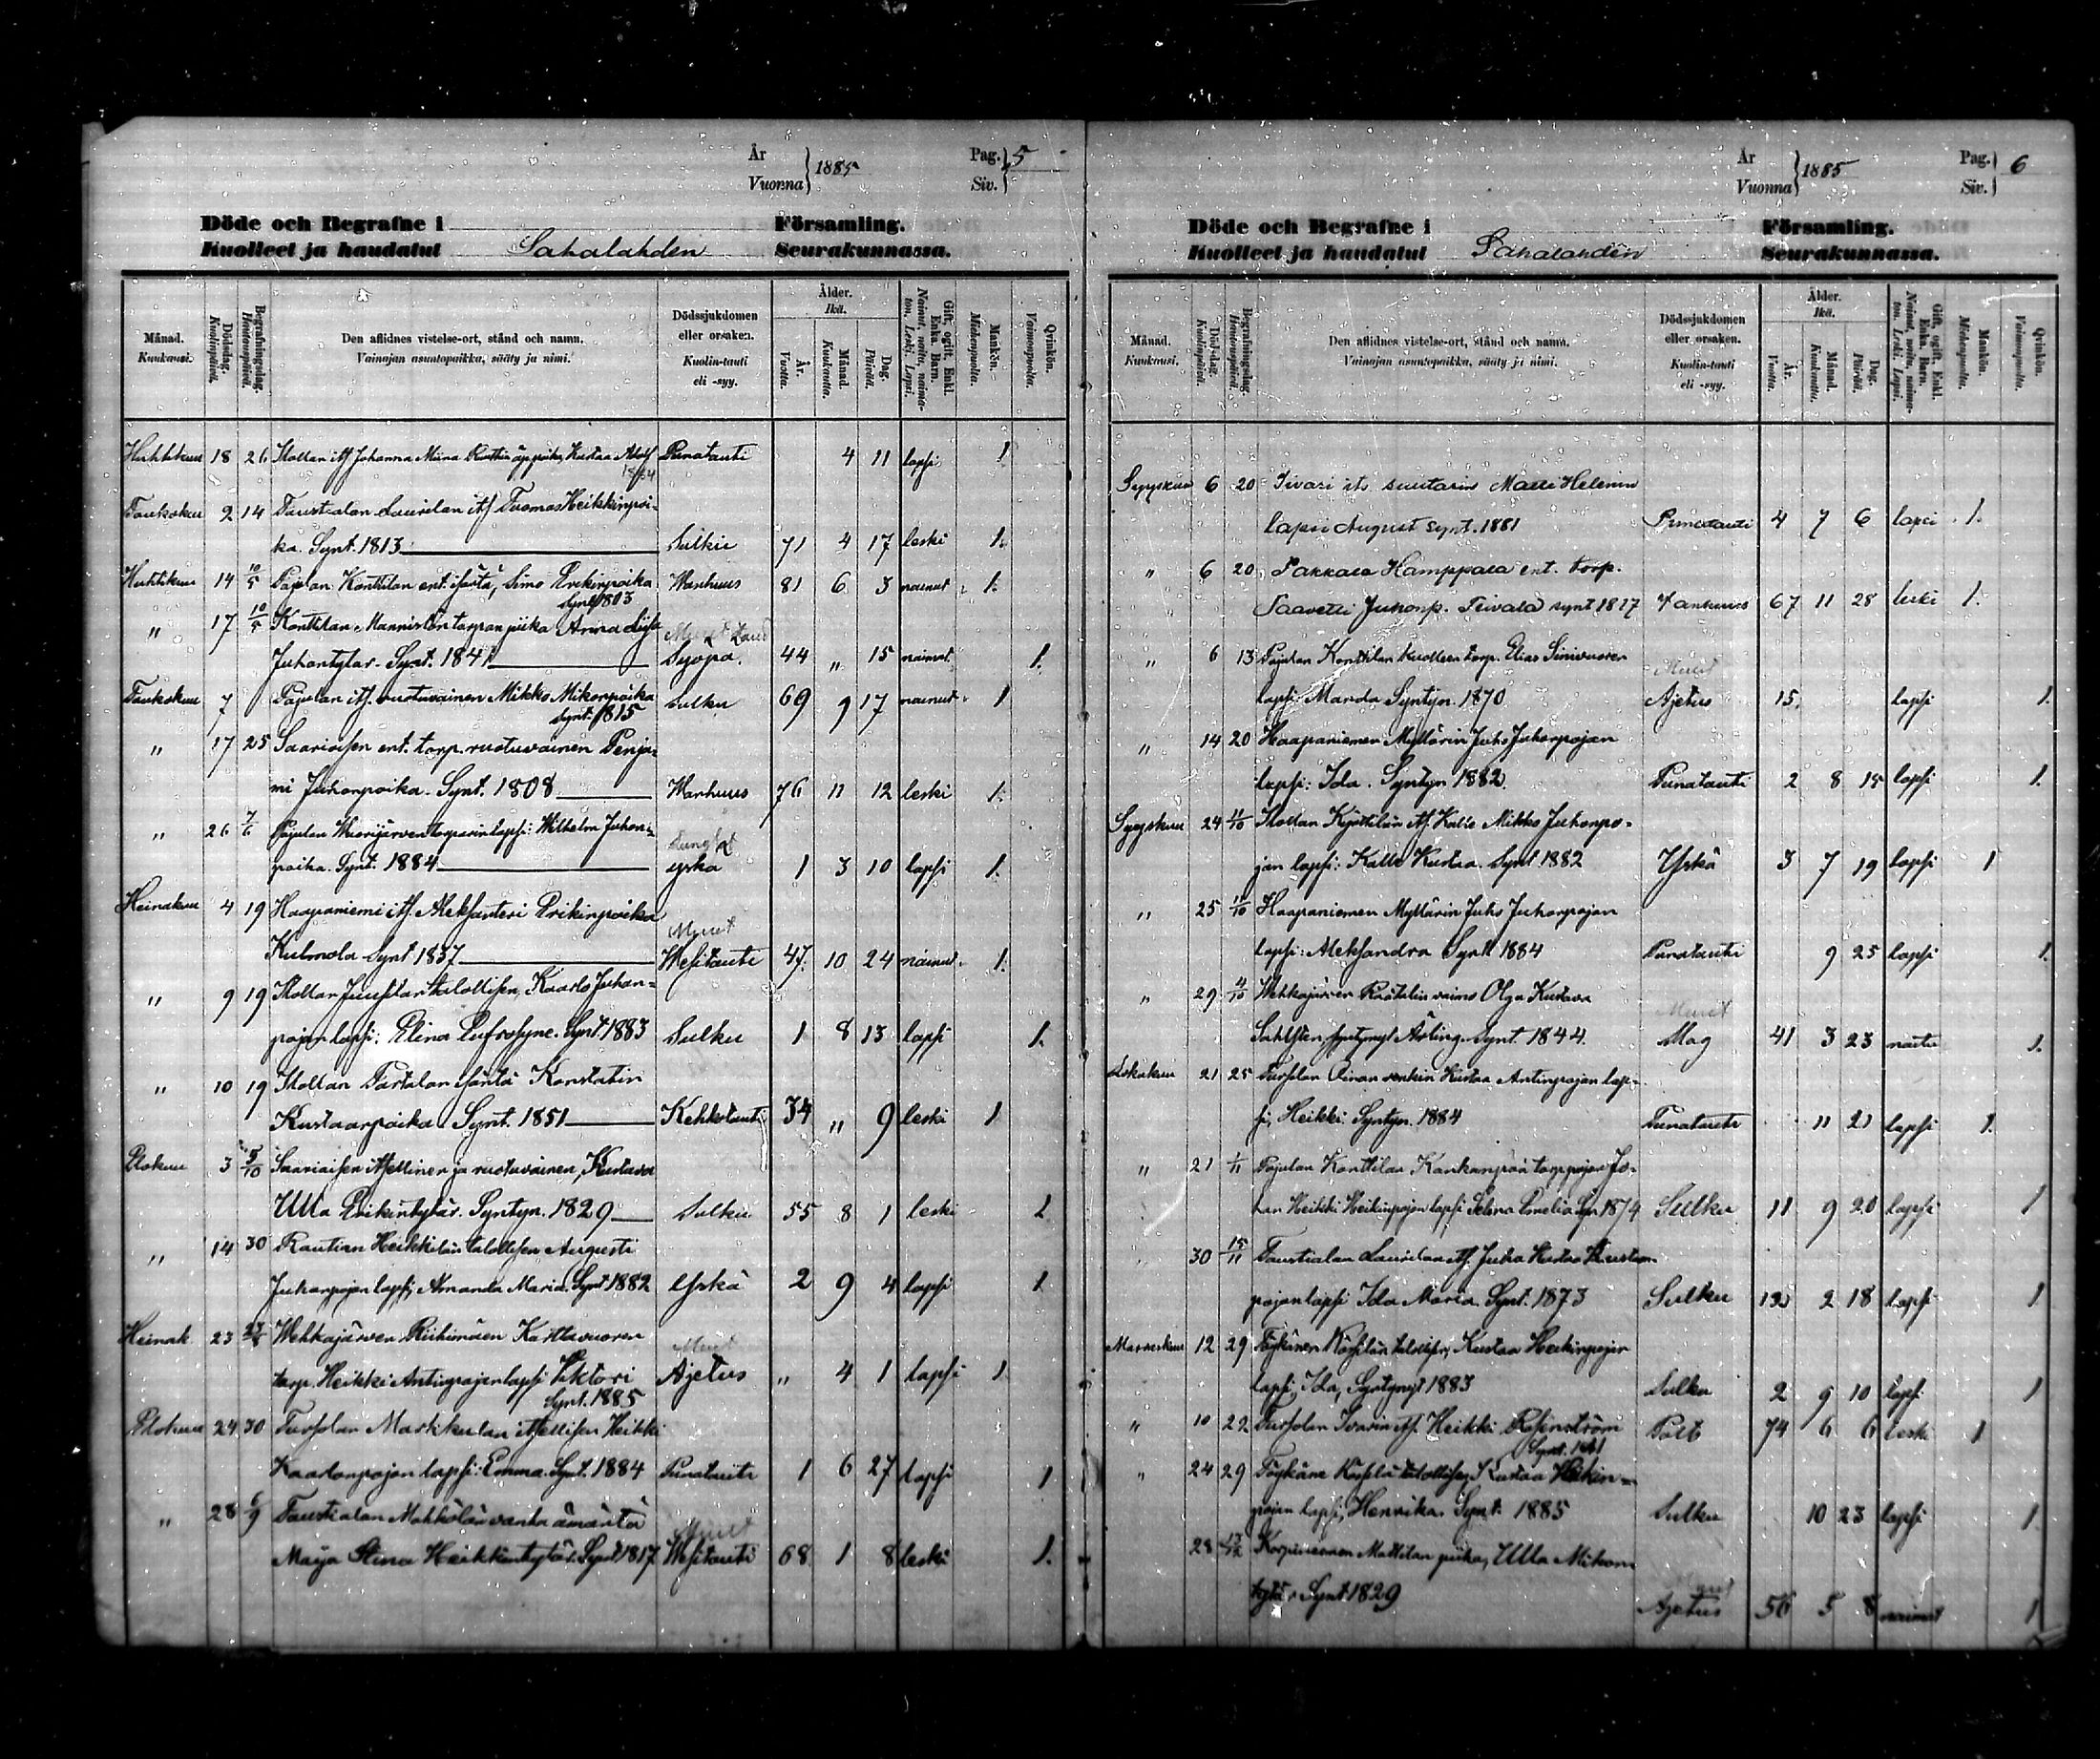 År
Vuonna } 1885
Pag.
Siv. } 5
Döde och Begrafne i Församling.
Kuolleet ja haudatut Sahalahden Seurakunnassa.
Månad. Kuukausi.
Dödsdag. Kuolinpäivä.
Begrafningsdag. Hautauspäivä.
Den aflidnes vistelse-ort, stånd och namn.
Vainajan asuntopaikka, sääty ja nimi.
Dödssjukdomen eller orsaken.
Kuolin-tauti eli -syy.
Ålder. Ikä.
År. Vuotta.
Månad. Kuukautta.
Dag. Päivää.
Gift, ogift, Enkl. Enka. Barn.
Nainut, naitu, naimaton, Leski. Lapsi.
Mankön. Miehenpuolta.
Qvinkön. Vaimonpuolta.
Huhtikuu 18 26 Mollan itf Johanna Miina äpärä poika, Kustaa Adolf Punatauti 4 11 lapsi 1
Toukokuu 2 14 Taustialan Laurilan itf Tuomas Heikkinpoi-
ka. Synt. 1813 Sulku 71 4 17 leski 1.
Huhtikuu 14 10/5 Pajulan Konttilan ent. isäntä, Simo Erikinpoika Wanhuus 81 6 3 nainut 1.
Synt. 1803
" 17 10/5 Konttilan Manniston torpan piika Anna Liisa
Juhontytär. Synt. 1841 Syöpä. 44 " 15 naimat. 1.
Toukokuu 7 Pajulan itf. ruotuvainen Mikko Mikonpoika Sulku 69 9 17 nainut 1
Synt. 1815
" 17 25 Saarioisen ent. torp. ruotuvainen Penja-
mi Juhonpoika. Synt. 1808 Wanhuus 76 11 12 leski 1.
" 26 7/6 Pajulan Wuorijärven torparin lapsi: Wilhelm Juhon-
poika. Synt. 1884 yskä 1 3 10 lapsi 1.
Heinäkuu 4 19 Haapaniemi itf. Aleksanteri Erikinpoika
Kulmola Synt 1837 Wesitauti 47. 10 24 nainut. 1.
" 9 19 Mollan Juusilan talollisen, Kaarlo Juhon-
pojan lapsi: Elina Eufrosyne. Synt. 1883 Sulku 1 8 13 lapsi 1.
" 10 19 Mollan Pärtälän isäntä Konstatin
Kustaanpoika Synt. 1851 Kehkotauti 34 " 9 leski 1
Elokuu 3 5/10 Saarioisen itsellinen ja ruotuvainen, Kustava
Ulla Erikintytär. Syntyn. 1829 Sulku 55 8 1 leski 1
" 14 30 Rautian Heikkilän talollisen Augusti
Juhanpojan lapsi, Amanda Maria. Synt 1882 Yskä 2 9 4 lapsi 1
Heinäk. 23 Wehkajärven Riihimäen Karttavuoren
torp. Heikki Antinpojan lapsi Viktori Ajetus " 4 1 lapsi 1
Synt. 1885
Elokuu 24 30 Tursolan Markkulan itsellisen Heikki
Kaarlonpojan lapsi: Emma. Synt. 1884 Punatauti 1 6 27 lapsi 1
" 28 6/9 Taustialan Mahkölän vanha ämäntä
Maija Stina Heikkintytär. Synt 1817 Wesitauti 68 1 8 leski 1.
År
Vuonna } 1885
Pag.
Siv. } 6
Döde och Begrafne i Församling.
Kuolleet ja haudatut Sahalahden Seurakunnassa.
Månad. Kuukausi.
Dödsdag. Kuolinpäivä.
Begrafningsdag. Hautauspäivä.
Den aflidnes vistelse-ort, stånd och namn.
Vainajan asuntopaikka, sääty ja nimi.
Dödssjukdomen eller orsaken.
Kuolin-tauti eli -syy.
Ålder. Ikä.
År. Vuotta.
Månad. Kuukautta.
Dag. Päivää.
Gift, ogift, Enkl. Enka. Barn.
Nainut, naitu, naimaton, Leski. Lapsi.
Mankön. Miehenpuolta.
Qvinkön. Vaimonpuolta.
Syyskuu 6 20 Iivari its. suutarin Matti Helenin
lapsi August synt. 1881 Punatauti 4 7 6 lapsi 1.
" 6 20 Pakkala Hamppala ent. torp.
Taavetti Juhonp. Teivala synt 1817 Vanhuus 67 11 28 leski 1.
" 6 13 Pajulan Konttilan kuolleen torp. Elias Sinivuoren
lapsi Manda Syntyn. 1870 Ajetus 15. lapsi 1.
" 14 20 Haapaniemen Myllärin Juho Juhonpojan
lapsi: Ida. Syntyn 1882. Punatauti 2 8 15 lapsi 1.
Syyskuu 24 11/10 Mollan Kyöttilän itf Kalle Mikko Juhonpo-
jan lapsi: Kalle Kustaa. Synt 1882 Yskä 3 7 19 lapsi 1
" 25 11/10 Haapaniemen Myllärin Juho Juhonpojan
lapsi: Aleksandra Synt 1884 Punatauti 9 25 lapsi 1.
" 29 4/10 Wehkajärven Räätälin vaimo Olga Kustava
Sahlsten syntynyt Ärling. Synt. 1844. Mag 41 3 23 naitu 1.
Lokakuu 21 25 Tursolan Einan renkin Kustaa Antinpojan lap-
si, Heikki. Syntyn. 1884 Punatauti 11 21 lapsi 1.
" 21 1/11 Pajulan Konttilan Kankaanpään torppojan Jo-
han Heikki Heikinpojan lapsi Selina Emelia Syn 1874 Sulku 11 9 20 lapsi 1
30 15/11 Taustialan Laurilan itf. Juha Kustaa Kustaan-
pojan lapsi Ida Maria. Synt. 1873 Sulku 12 2 18 lapsi 1
Marraskuu 12 29 Töykänen Kärsilän talollisen, Kustaa Heikinpojan
lapsi, Ida, Syntynyt 1883 Sulku 2 9 10 lapsi 1
" 10 22 Tursolan Iivarin itf. Heikki Rosenström Polt 74 6 6 leski 1
" 24 29 Töykäne Kärsilä talollisen, Kustaa Heikin-
pojan lapsi, Henrika. Synt. 1885 Sulku 10 23 lapsi 1.
28 Mattilan piika, Ulla Mikon
tytär Synt 1829 Ajetus 56 5 8 naimat 1